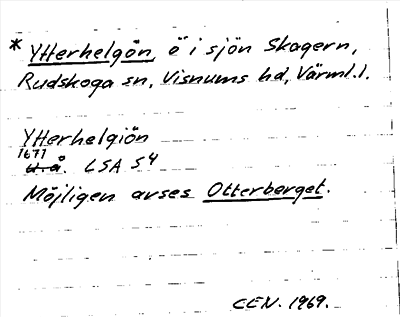 * Ytterhelgön, ö i sjön Skagern,
Rudskoga sn, Visnums hd, Värml.l.
Ytterhelgiön
1671
u.å. LSA S4
Möjligen avses Otterberget.
CEN. 1969.